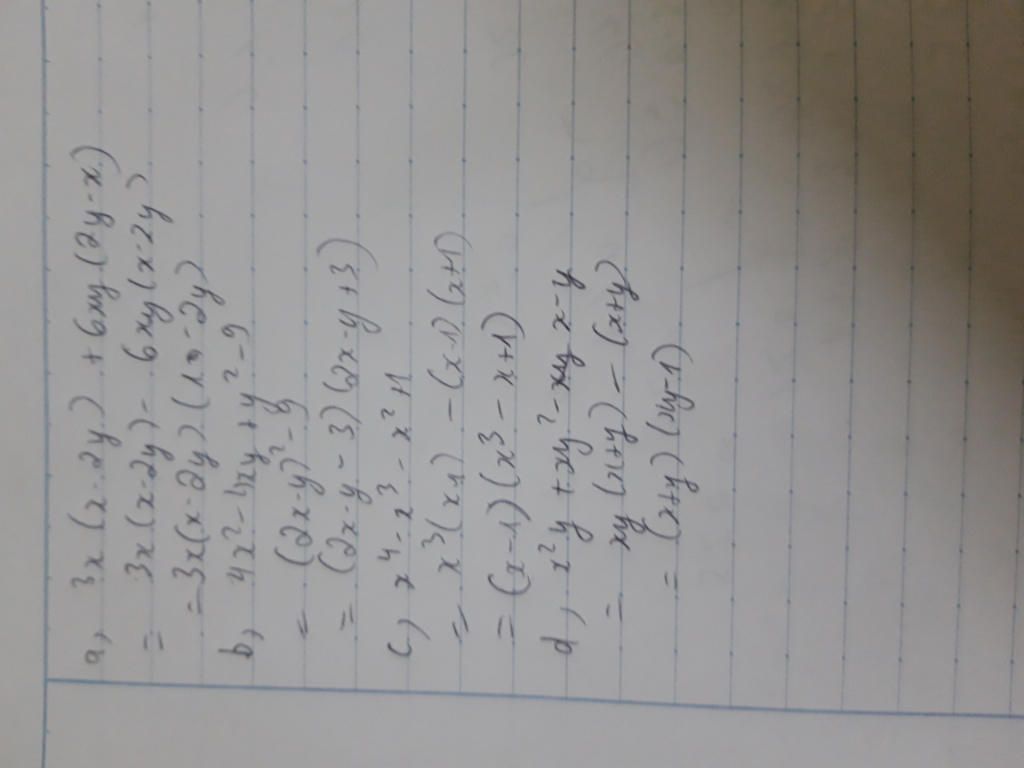 a, 3x(x-2y) + 6xy(2y-x)
= 3x(x-2y) - 6xy(x-2y)
= 3x(x-2y)(1-2y)
b, 4x² - 4xy + y² - 9
= (2x-y)² - 9
= (2x-y-3)(2x-y+3)
c, x⁴ - x³ - x² + 1
= x³(x-1) - (x-1)(x+1)
= (x-1)(x³ - x+1)
d, x²y + xy² - xy x-y
= xy(x+y) - (x+y)
= (x+y)(xy-1)